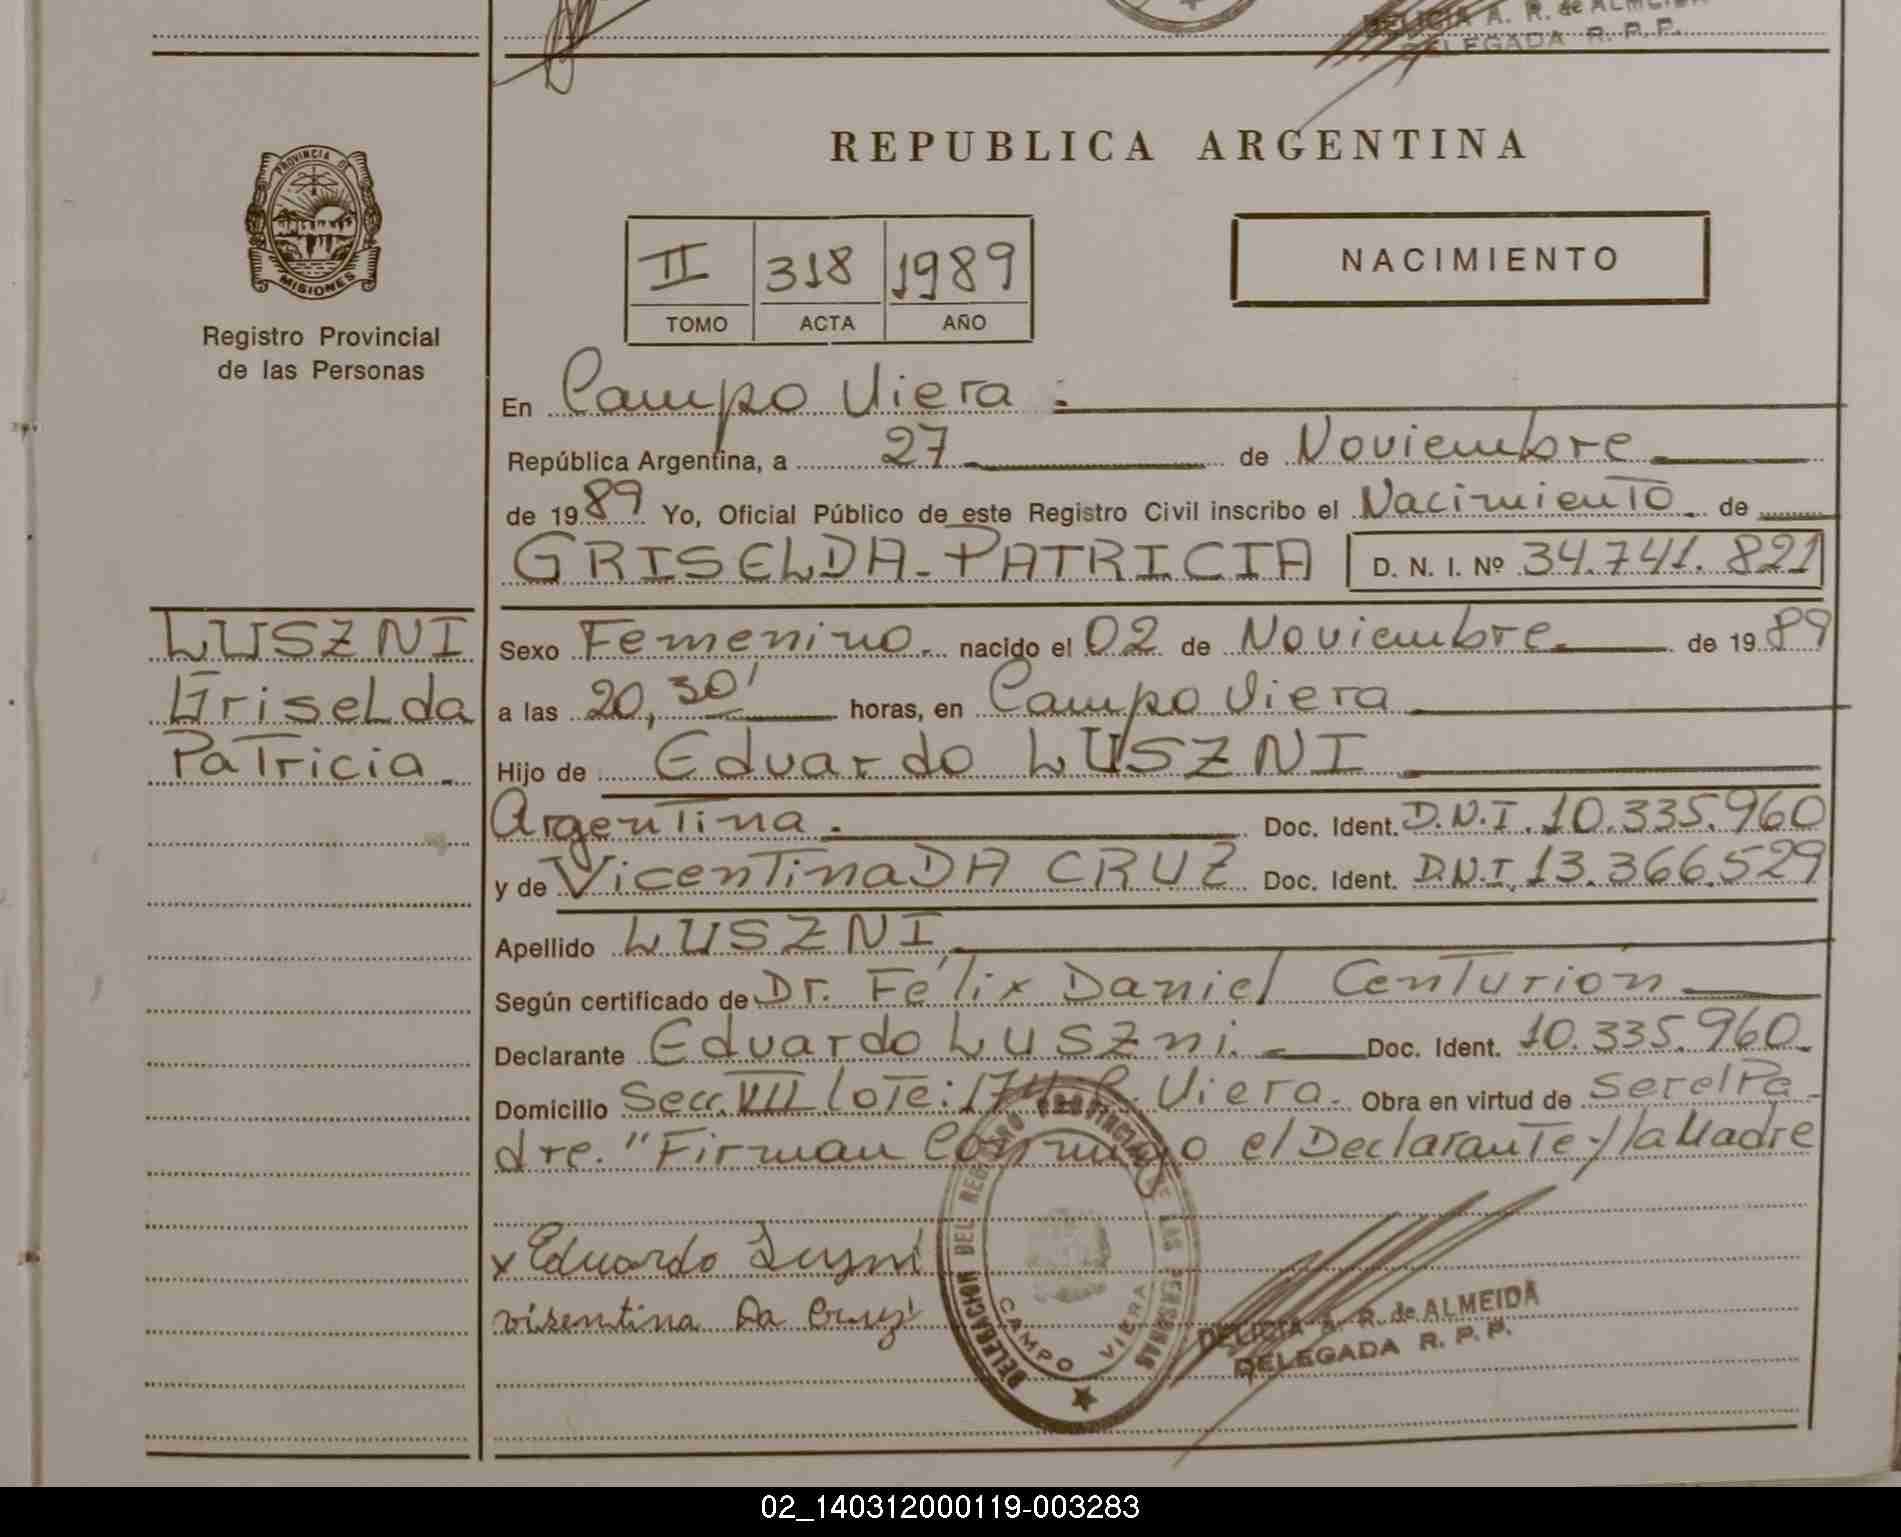 DELICIA A. R. de ALMEIDA
DELEGADA R. P. P.
REPUBLICA ARGENTINA
PROVINCIA D
MISIONES
Registro Provincial
de las Personas
II 318 1989
TOMO ACTA AÑO
NACIMIENTO
En Campo Viera :
República Argentina, a 27 de Noviembre
de 1989 Yo, Oficial Público de este Registro Civil inscribo el Nacimiento de
GRISELDA-PATRICIA D. N. I. Nº 34.741.821
LUSZNI
Griselda
Patricia
Sexo Femenino. nacido el 02 de Noviembre de 1989
a las 20,30' horas, en Campo Viera
Hijo de Eduardo LUSZNI
Argentina. Doc. Ident. D.N.I. 10.335.960
y de Vicentina DA CRUZ Doc. Ident. D.N.I. 13.366.529
Apellido LUSZNI
Según certificado de Dr. Félix Daniel Centurión
Declarante Eduardo Luszni. Doc. Ident. 10.335.960
Domicilio Secc. VII lote: 174 C. Viera. Obra en virtud de ser el Pa-
dre. "Firman Conmigo el Declarante y la Madre
x Eduardo Luszni
visentina Da Cruz
DELEGACION DEL REGISTRO PROVINCIAL DE LAS PERSONAS
CAMPO VIERA
DELICIA A. R. de ALMEIDA
DELEGADA R. P. P.
02_140312000119-003283